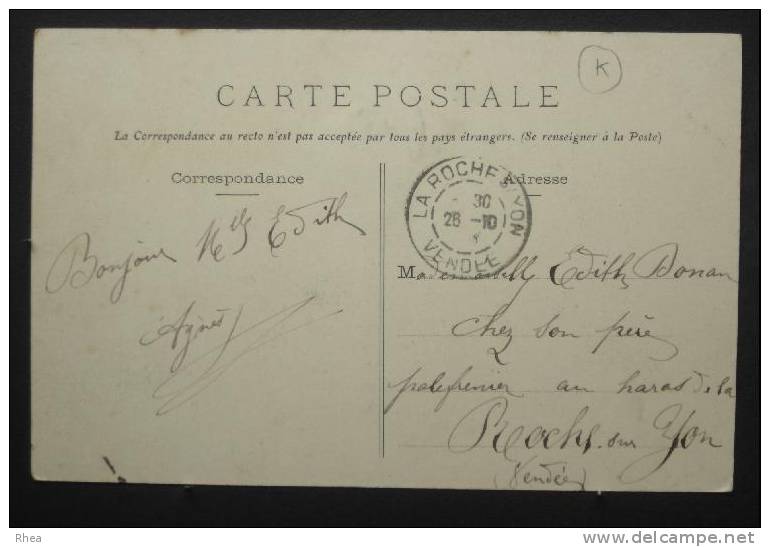 K
CARTE POSTALE
La Correspondance au recto n'est pas acceptée par tous les pays étrangers. (Se renseigner à la Poste)
Correspondance
Adresse
LA ROCHE S YON
30
26 -10
VENDÉE
Bonjour Mlle Edith
Agnès
Mademoiselle Edith Bonan
Chez son père
palefrenier au haras de la
Roche sur Yon
(Vendée)
Rhea
http://www.delcampe.net